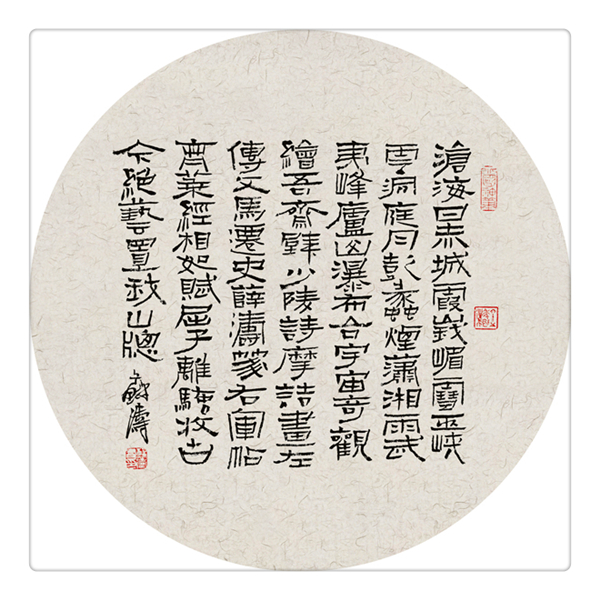 滄海日赤城霞峨嵋雪巫峽
雲洞庭月彭蠡煙瀟湘雨武
夷峰廬山瀑布合宇宙奇觀
繪吾齋壁少陵詩摩詰畫左
傳文馬遷史薛濤箋右軍帖
南華經相如賦屈子離騷收古
今絕藝置我山窗
濤